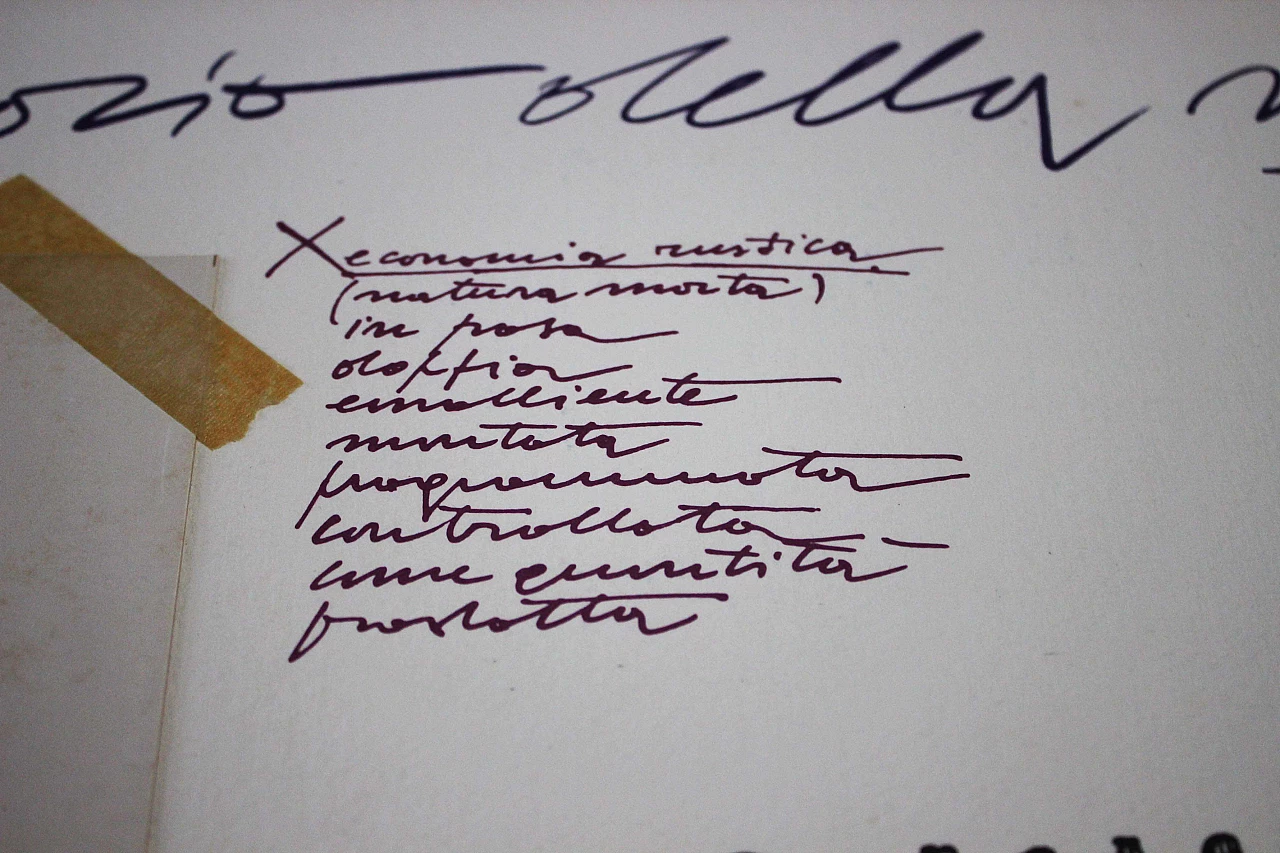 ozio della
X economia rustica
(natura morta)
in posa
doppia
emolliente
montata
programmata
controllata
come quantità
prodotta